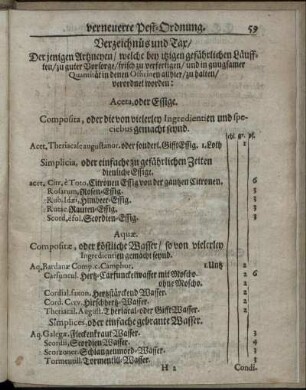 verneuerte Pest-Ordnung. 59
Verzeichnüs und Tax/
Der jenigen Artzneyen/ welche bey itzigen gefährlichen Läuff-
ten/ zu guter Vorsorge/ frisch zu verfertigen/ und in gnugsamer
Quantität in denen Officinen allhier/ zu halten/
verordnet worden:
Aceta, oder Essige.
Composita, oder die von vielerley Ingredientien und spe-
ciebus gemacht seynd.
Acet, Theriacale augustanũ, oder sonderl. Gifft Essig, 1. Loth 1
Simplicia, oder einfache zu gefährlichen Zeiten
dienliche Essige.
acet, Citr. è Toto, Citronen Essig von der gantzen Citronen. 6
Rosarum, Rosen-Essig. 3
Rub. Idæi, Himbeer-Essig. 3
Rutæ, Rauten-Essig. 3
Scord. è fol. Scordien-Essig. 3
Aquæ.
Compositæ, oder köstliche Wasser/ so von vielerley
Ingredientien gemacht seynd.
Aq. Bardanæ Comp. c. Camphor. 1. Untz 2
Carfuncul. Hertz-Carfunckelwasser mit Moscho. 2 6
ohne Moscho. 2
Cordial. Saxon. Hertzstärckend Wasser. 2
Cord. Cerv. Hirschhertz-Wasser. 2
Theriacal. August. Theriacal- oder Gifft Wasser. 2
Simplices, oder einfache gebrante Wasser.
Aq. Galegæ, Fleckenkraut Wasser. 3
Scordii, Scordien-Wasser. 3
Scorzoneræ, Schlangenmord-Wasser. 3
Tormentill, Tormentill-Wasser. 3
H 2 Condi-